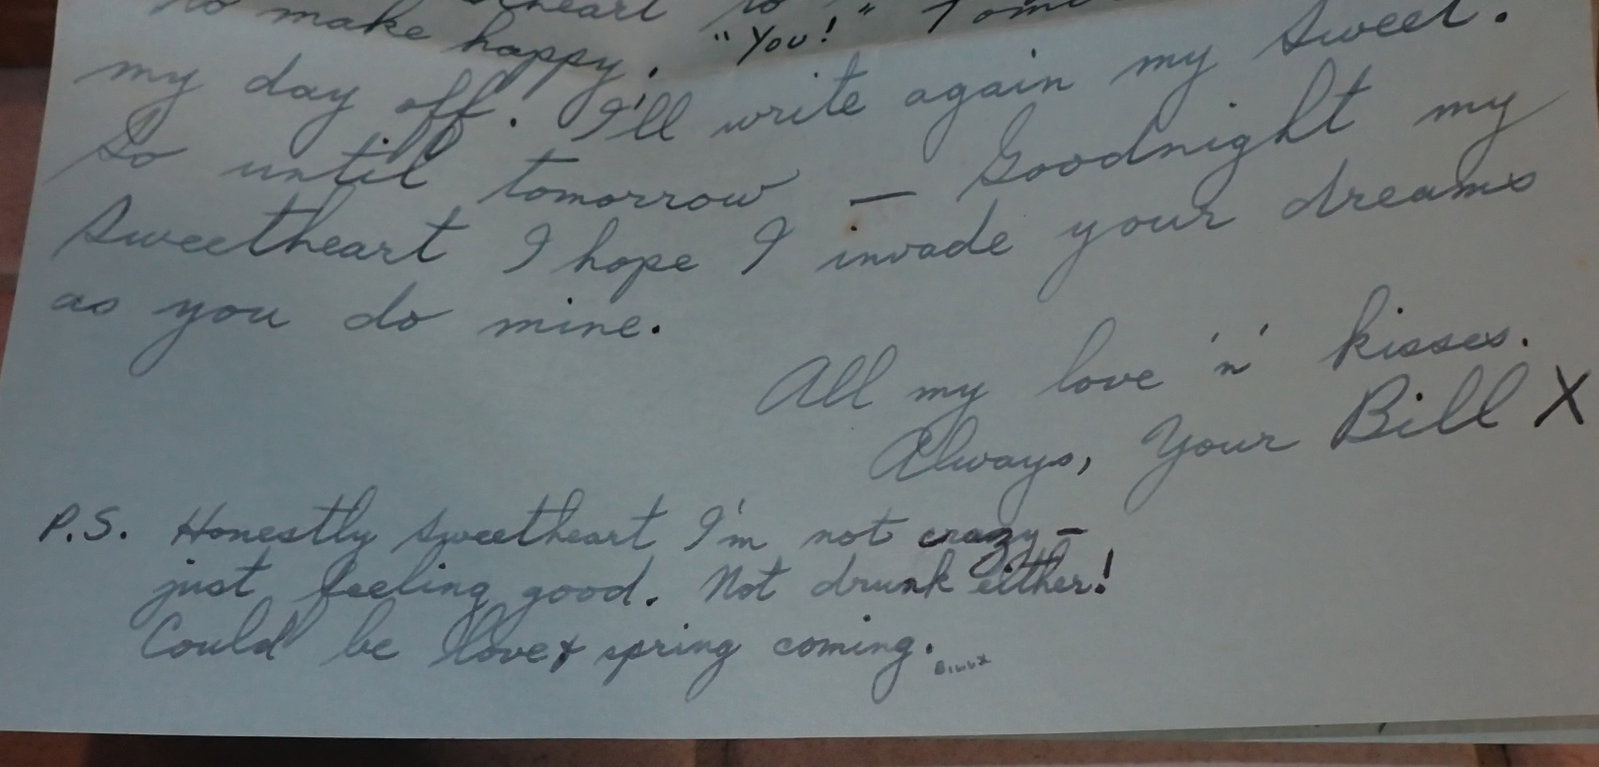 to make happy. "You!"
my day off. I'll write again my Sweet.
So until tomorrow — Goodnight my
Sweetheart I hope I invade your dreams
as you do mine.
All my love 'n' kisses.
Always, Your Bill X
P.S. Honestly Sweetheart I'm not crazy —
just feeling good. Not drunk either!
Could be love & spring coming.
Bill X